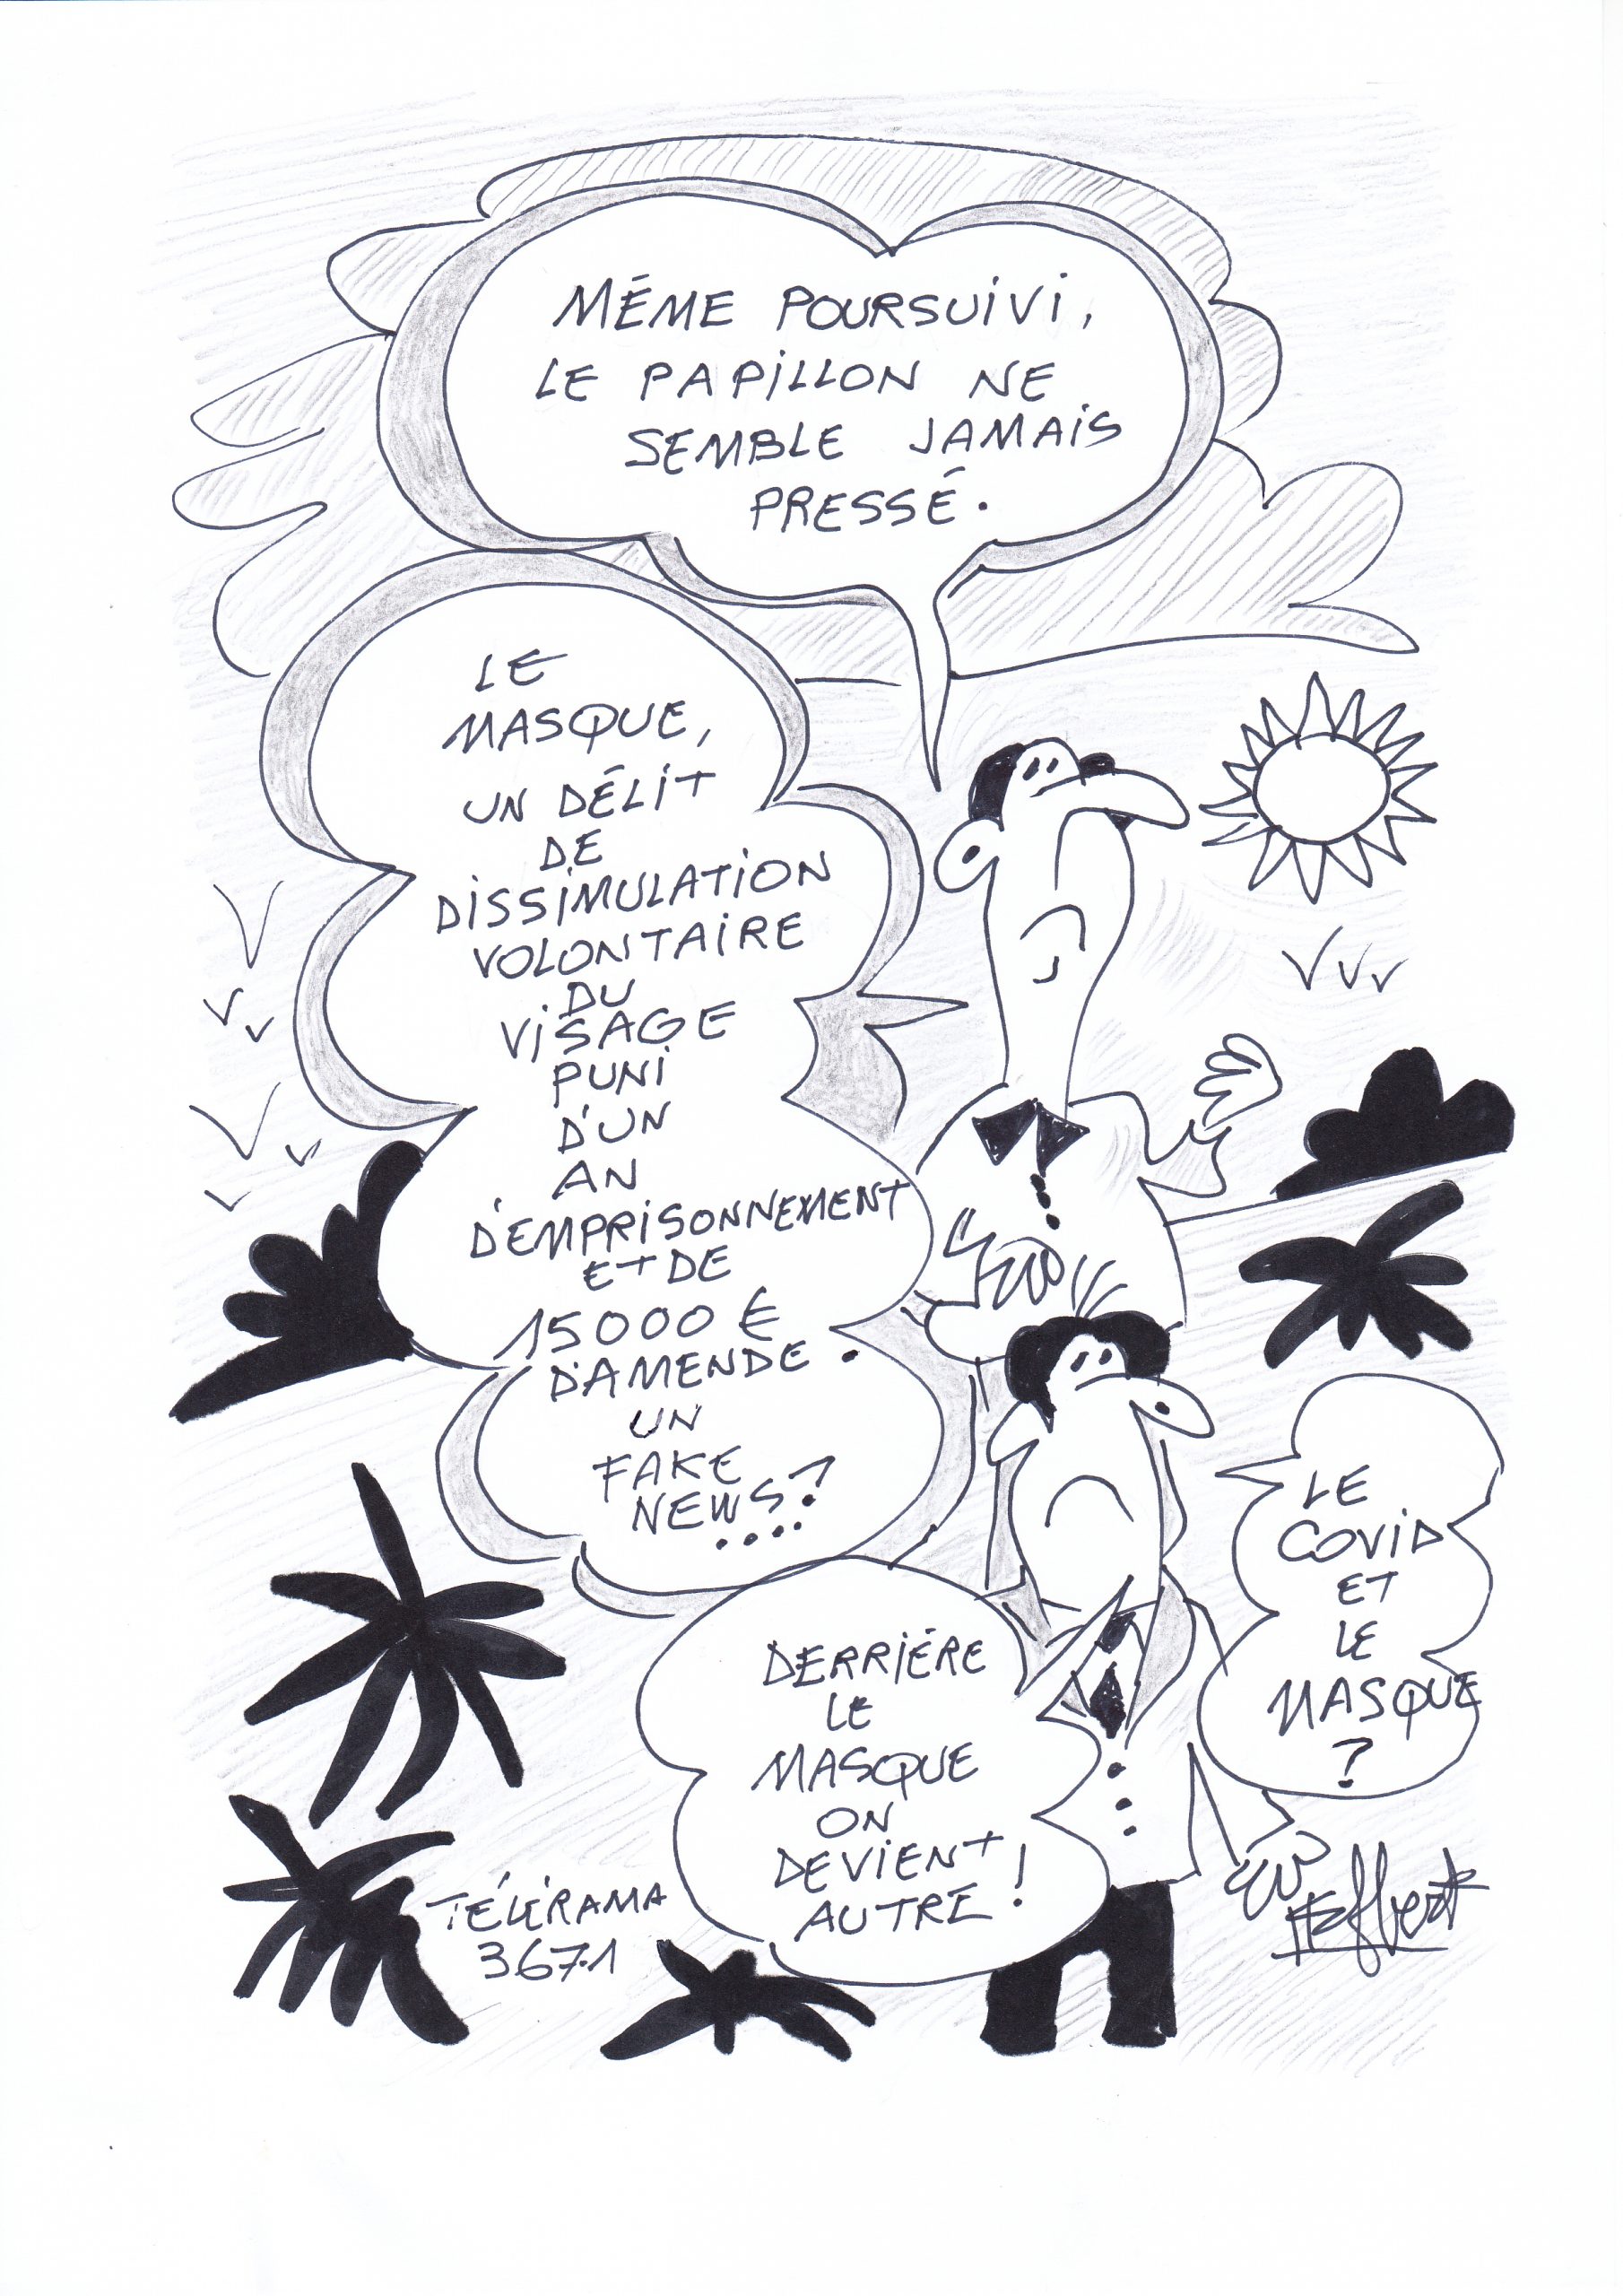 MÉME POURSUIVI,
LE PAPILLON NE
SEMBLE JAMAIS
PRESSÉ.
LE
MASQUE,
UN DÉLIT
DE
DISSIMULATION
VOLONTAIRE
DU
VISAGE
PUNI
D'UN
AN
D'EMPRISONNEMENT
ET DE
15000 €
D'AMENDE.
UN
FAKE
NEWS?
....
LE
COVID
ET
LE
MASQUE
?
DERRIÉRE
LE
MASQUE
ON
DEVIENT
AUTRE!
TÉLÉRAMA
3671